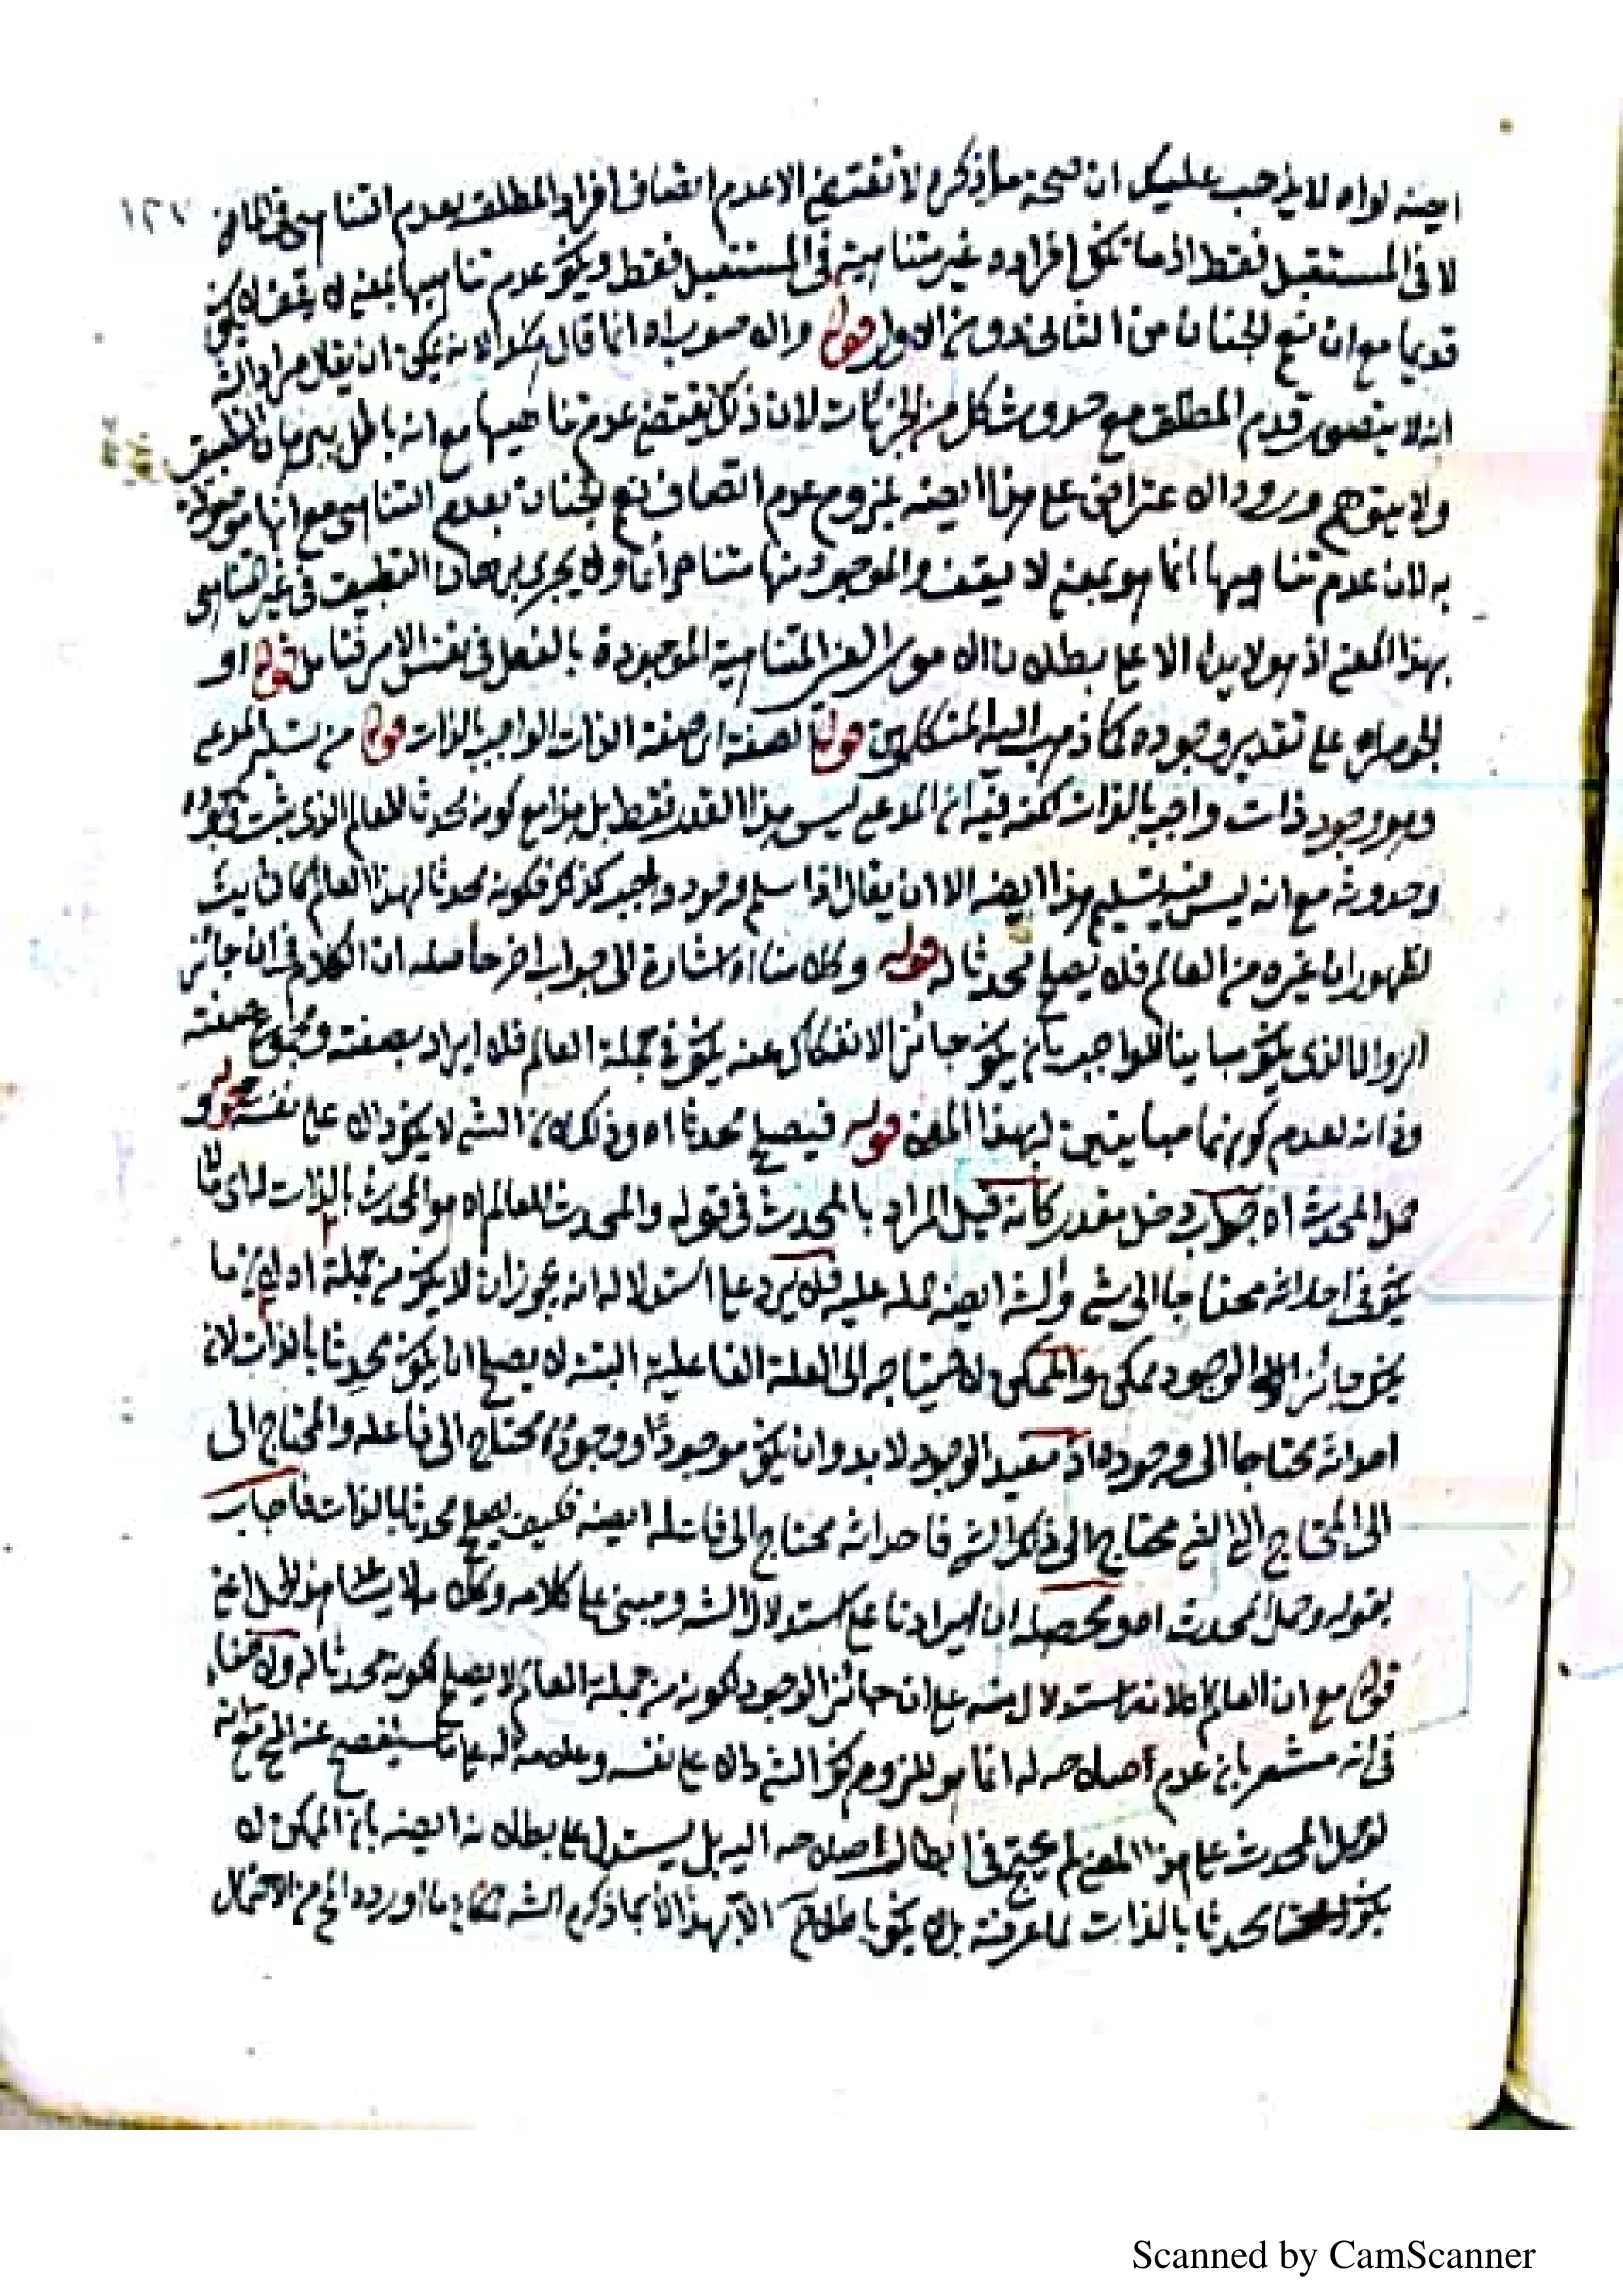 ايضه لو اه لا يذهب عليك ان صحة ما ذكره لا تقتضي الا عدم اتصاف افراد المطلق بعدم التناهى فى الماضي ١٢٧
لا فى المستقبل فقط اذ ما تكن افراده غير متناهية فى المستقبل فقط ويكو عدم تناهيها بمعنى لا يقف لا يكن
قديما مع ان نعم الجنان من الثانى دون الاول قوله والا صوب اه انما قال هكذا لانه يمكن ان يقال مراد الشه
انه لا يتصور قدم المطلق مع حدوث كل من الجزئيات لان ذلك يقتضي عدم تناهيها مع انه باطل ببرهان التطبيق
ولا يتوهم ورود الاعتراض على هذا ايضه بلزوم عدم اتصاف نعم الجنان بعدم التناهى مع انها موصوفة
به لان عدم تناهيها انما هو بمعنى لا يقف والموجود منها متناه ابدا ولا يجرى برهان التطبيق فى غير المتناهى
بهذا المعنى اذ هو لا يدل الا على بطلان الامور الغير المتناهية الموجودة بالفعل فى نفس الامر فتامل قوله او
الجوهر اه على تقدير وجوده كما ذهب اليه المتكلمون قوله لصفة اى صفة الذات الواجب بالذات قوله من تسليم المدعى
وهو وجود ذات واجب بالذات لكنه فيه ان المدعى ليس هذا القدر فقط بل هذا مع كونه محدثا للعالم الذى ثبت وجوده
وحدوثه مع انه ليس فيه تسليم هذا ايضه الا ان يقال اذا سلم وجود واجب كذلك فكونه محدثا لهذا العالم كان يثبت
لظهور ان غيره من العالم فلا يصلح محدثا له قوله وكلامنا اه اشارة الى جواب اخر حاصله ان الكلام فى ان جائز
الزوال الذى يكو مباينا للواجب بان يكو جائز الانفكاك عنه يكو فى جملة العالم فلا ايراد بصفته ومجموع صفته
وذاته لعدم كونهما مباينين لهذا المعنى قوله فيصلح محدثا اه وذلك لان الشى لا يكو دالا على نفسه قوله و
حمل المحدث اه جواب دخل مقدر كانه قيل المراد بالمحدث فى قوله والمحدث للعالم اه هو المحدث بالذات اى ما لا
يكو فى احداثه محتاجا الى شى والشه ايضه حمله عليه فلا يرد على استدلاله انه يجوز ان لا يكو من جملة اه لان ما
يكو جائز الوجود ممكن والممكن لاحتياجه الى العلة الفاعلية البتة لا يصلح ان يكو محدثا بالذات لان
احداثه محتاجا الى وجوده اذ مفيد الوجود لا بد وان يكو موجودا ووجوده محتاج الى فاعله والمحتاج الى
الى المحتاج الى الشى محتاج الى ذلك الشى فاحداثه محتاج الى فاعله ايضه فكيف يصلح محدثا بالذات فاجاب
بقوله وحمل المحدث اه ومحصله ان ايرادنا على استدلال الشه ومبنى على كلامه وكلامه لا يساعد هذا الحمل اعنى
قوله مع ان العالم اه لانه استدلال منه على ان جائز الوجود لكونه من جملة العالم لا يصلح لكونه محدثا له ولا خفاء
فى انه مشعر بان عدم صلاحه له انما هو للزوم كو الشى دالا على نفسه وعلامة له على ما سيفصح عنه المح مع انه
لو حمل المحدث على هذا المعنى لم يحتج فى ابطال صلاحه اليه بل يستدل على بطلانه ايضه بان الممكن لا
يكو محدثا بالذات لما عرفته بل لا يكو باطلاح الا بهذا لا بما ذكره الشه اورد المح من الاحتمال
Scanned by CamScanner